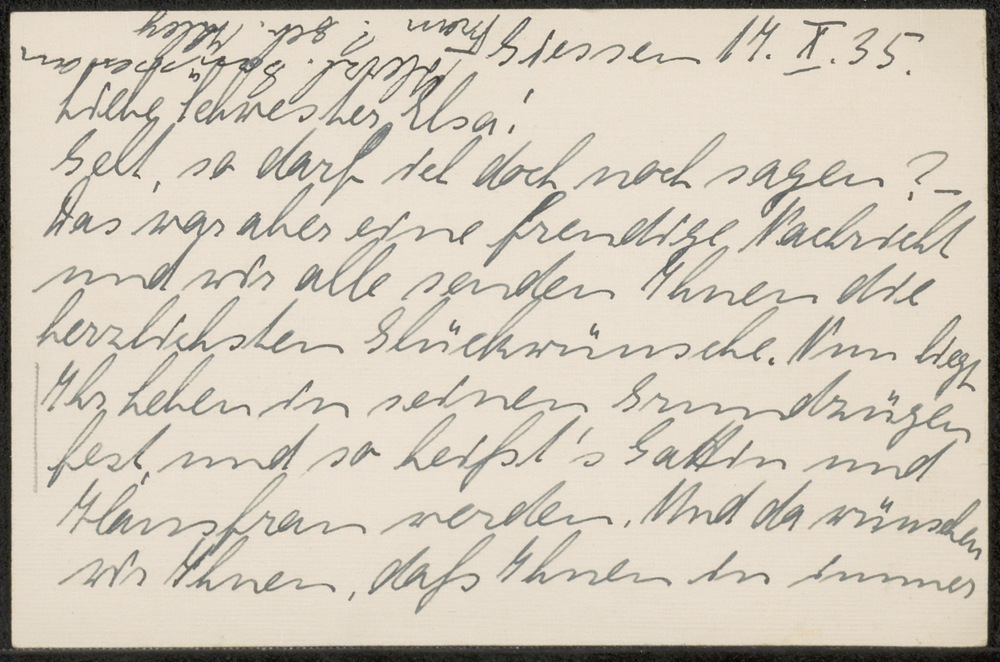 Giessen 14. X. 35.
Liebe Schwester Elsa!
Gelt, so darf ich doch noch sagen? –
Das war aber eine freudige Nachricht
und wir alle senden Ihnen die
herzlichsten Glückwünsche. Nun liegt
Ihr Leben in seinen Grundzügen
fest, und so heißt's Gattin und
Hausfrau werden. Und da wünschen
wir Ihnen, daß Ihnen in immer